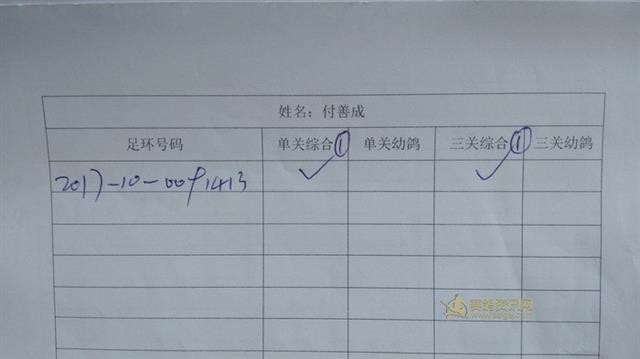 姓名：付善成
足环号码 单关综合① 单关幼鸽 三关综合① 三关幼鸽
2017-10-0091413 ✓ ✓